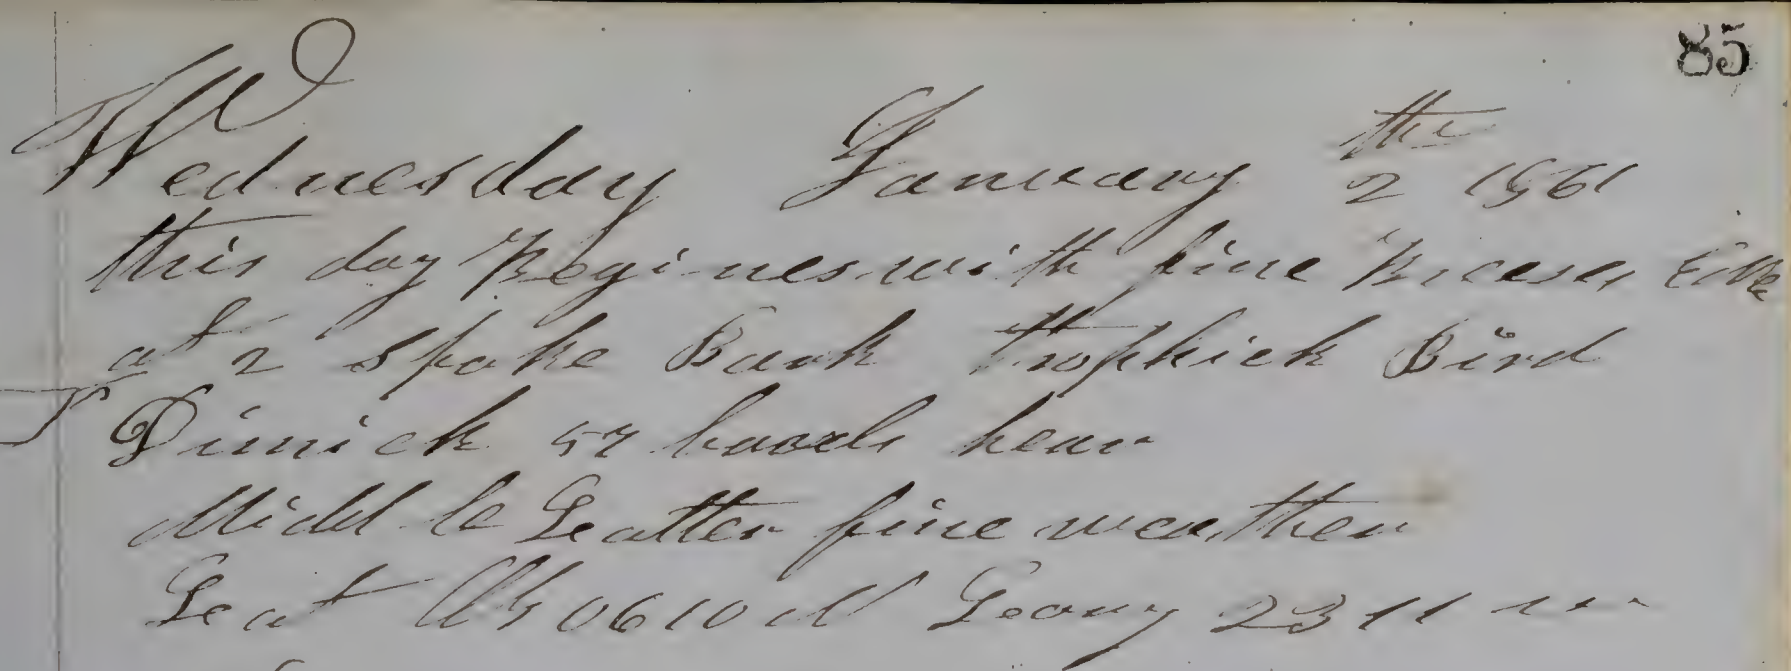 85
Wednesday January 2 the 1861
this day Begines with fine Breeses
at 2 spoke Bark trophick Bird
Dimick 57 baarls hear
Middle Leatter fine weather
Leat Ob 06 10 N Leong 23 11